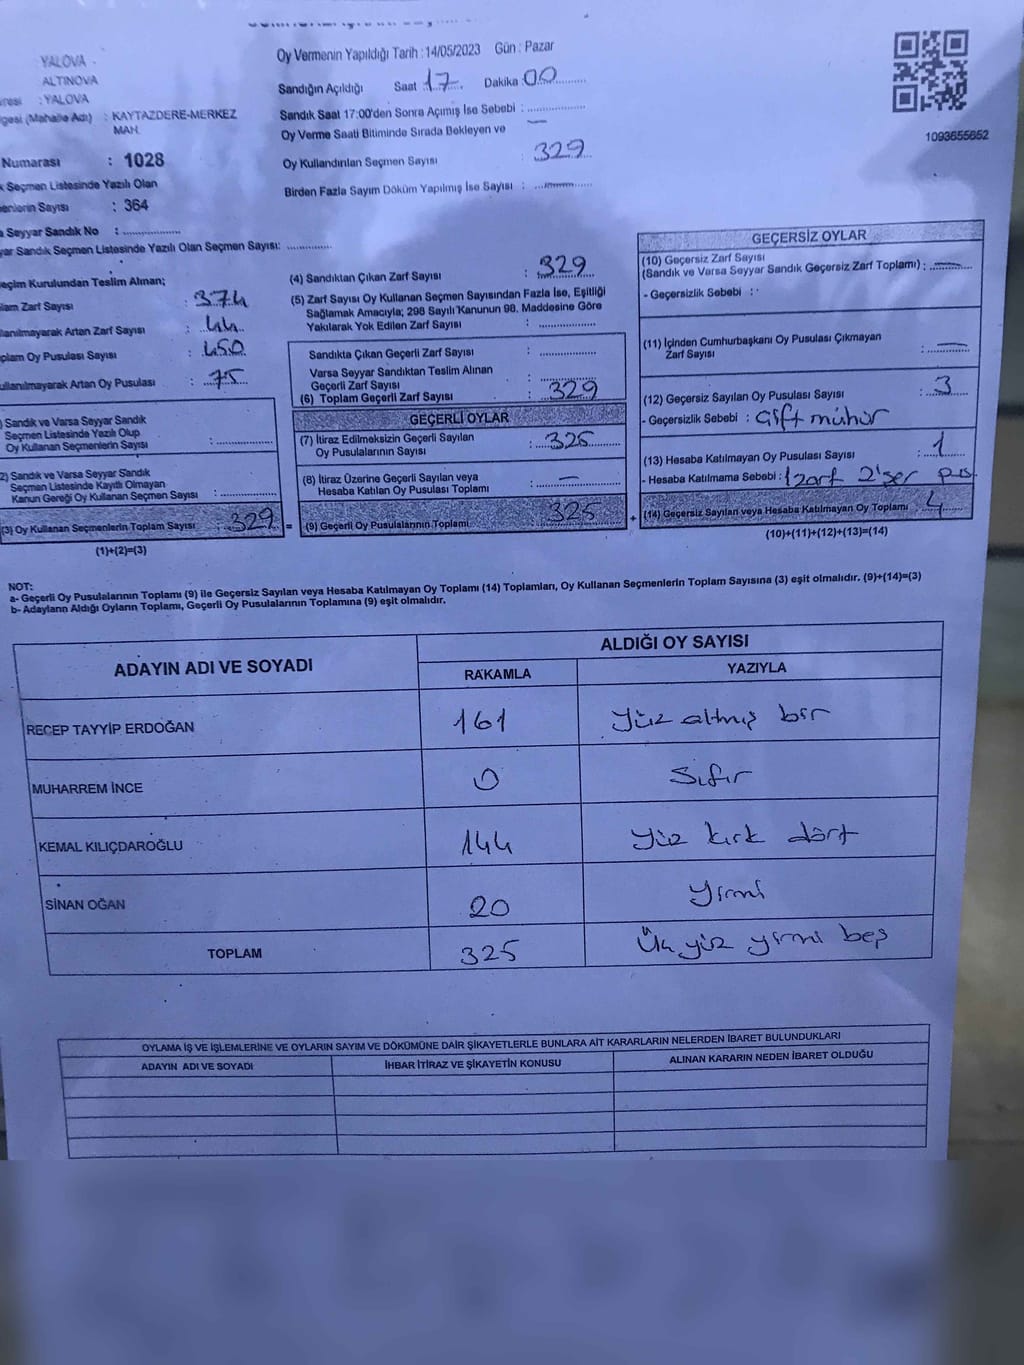 YALOVA
ALTINOVA
: YALOVA
(Mahalle Adı) : KAYTAZDERE-MERKEZ
MAH.
Numarası : 1028
Seçmen Listesinde Yazılı Olan
Sayısı : 364
Seyyar Sandık No : ..................
Sandık Seçmen Listesinde Yazılı Olan Seçmen Sayısı: ..............
Oy Vermenin Yapıldığı Tarih : 14/05/2023 Gün : Pazar
Sandığın Açıldığı Saat 17 Dakika : 00
Sandık Saat 17:00'den Sonra Açımış İse Sebebi : ..................
Oy Verme Saati Bitiminde Sırada Bekleyen ve
Oy Kullandırılan Seçmen Sayısı : 329
Birden Fazla Sayım Döküm Yapılmış İse Sayısı :
1093655652
Kurulundan Teslim Alınan;
Zarf Sayısı : 374
Artan Zarf Sayısı : 44
Oy Pusulası Sayısı : 450
Artan Oy Pusulası : 75
Sandık ve Varsa Seyyar Sandık
Seçmen Listesinde Yazılı Olup
Oy Kullanan Seçmenlerin Sayısı : ..................
2) Sandık ve Varsa Seyyar Sandık
Seçmen Listesinde Kayıtlı Olmayan
Kanun Gereği Oy Kullanan Seçmen Sayısı : ..................
(3) Oy Kullanan Seçmenlerin Toplam Sayısı : 329 =
(1)+(2)=(3)
(4) Sandıktan Çıkan Zarf Sayısı : 329
(5) Zarf Sayısı Oy Kullanan Seçmen Sayısından Fazla İse, Eşitliği
Sağlamak Amacıyla; 298 Sayılı Kanunun 98. Maddesine Göre
Yakılarak Yok Edilen Zarf Sayısı : ..................
Sandıkta Çıkan Geçerli Zarf Sayısı : ..................
Varsa Seyyar Sandıktan Teslim Alınan
Geçerli Zarf Sayısı : ..................
(6) Toplam Geçerli Zarf Sayısı : 329
GEÇERLİ OYLAR
(7) İtiraz Edilmeksizin Geçerli Sayılan
Oy Pusulalarının Sayısı : 325
(8) İtiraz Üzerine Geçerli Sayılan veya
Hesaba Katılan Oy Pusulası Toplamı : —
(9) Geçerli Oy Pusulalarının Toplamı : 325 +
GEÇERSİZ OYLAR
(10) Geçersiz Zarf Sayısı
(Sandık ve Varsa Seyyar Sandık Geçersiz Zarf Toplamı) : —
- Geçersizlik Sebebi :
(11) İçinden Cumhurbaşkanı Oy Pusulası Çıkmayan
Zarf Sayısı : —
(12) Geçersiz Sayılan Oy Pusulası Sayısı : 3
- Geçersizlik Sebebi : Çift mühür
(13) Hesaba Katılmayan Oy Pusulası Sayısı : 1
- Hesaba Katılmama Sebebi : 1 zarf 2'şer pus
(14) Geçersiz Sayılan veya Hesaba Katılmayan Oy Toplamı : 4
(10)+(11)+(12)+(13)=(14)
NOT:
a- Geçerli Oy Pusulalarının Toplamı (9) ile Geçersiz Sayılan veya Hesaba Katılmayan Oy Toplamı (14) Toplamları, Oy Kullanan Seçmenlerin Toplam Sayısına (3) eşit olmalıdır. (9)+(14)=(3)
b- Adayların Aldığı Oyların Toplamı, Geçerli Oy Pusulalarının Toplamına (9) eşit olmalıdır.
ADAYIN ADI VE SOYADI ALDIĞI OY SAYISI
RAKAMLA YAZIYLA
RECEP TAYYİP ERDOĞAN 161 Yüz altmış bir
MUHARREM İNCE 0 Sıfır
KEMAL KILIÇDAROĞLU 144 Yüz kırk dört
SİNAN OĞAN 20 Yirmi
TOPLAM 325 Üç yüz yirmi beş
OYLAMA İŞ VE İŞLEMLERİNE VE OYLARIN SAYIM VE DÖKÜMÜNE DAİR ŞİKAYETLERLE BUNLARA AİT KARARLARIN NELERDEN İBARET BULUNDUKLARI
ADAYIN ADI VE SOYADI İHBAR İTİRAZ VE ŞİKAYETİN KONUSU ALINAN KARARIN NEDEN İBARET OLDUĞU